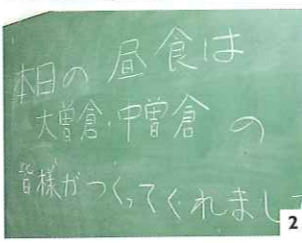 本日の昼食は
大曽倉・中曽倉の
皆様がつくってくれまし
2